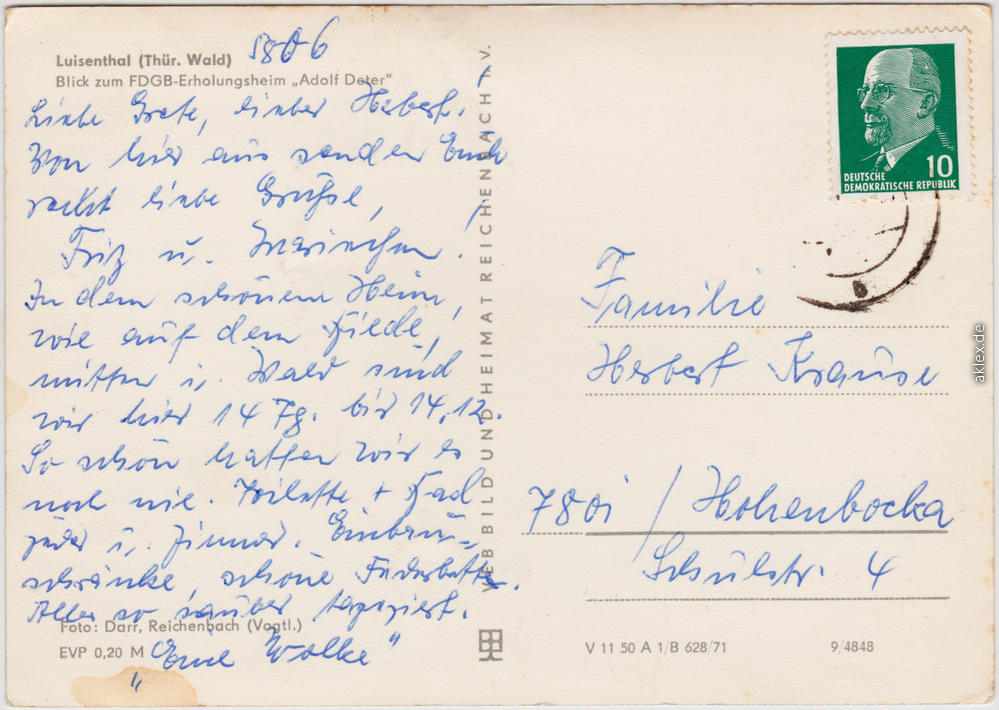 Luisenthal (Thür. Wald) 5806
Blick zum FDGB-Erholungsheim „Adolf Deter"
Liebe Grete, lieber Herbert.
Von hier aus senden Euch
recht liebe Grüße,
Fritz u. Mariechen!
In dem schönen Heim,
wie auf dem Bilde,
mitten i. Wald sind
wir hier 14 Tg. bis 14.12.
So schön hatten wir es
noch nie. Toilette + Bad
jedes i. Zimmer. Einbau-
schränke, schöne Federbetten.
Alles so sauber tapeziert.
Foto: Darr, Reichenbach (Vogtl.)
EVP 0,20 M
„Eure Wolke"
VEB BILD UND HEIMAT REICHENBACH I. V.
DEUTSCHE
DEMOKRATISCHE REPUBLIK
10
Familie
Herbert Krause
7801 / Hohenbocka
Schulstr. 4
V 11 50 A 1/B 628/71 9/4848
aklex.de